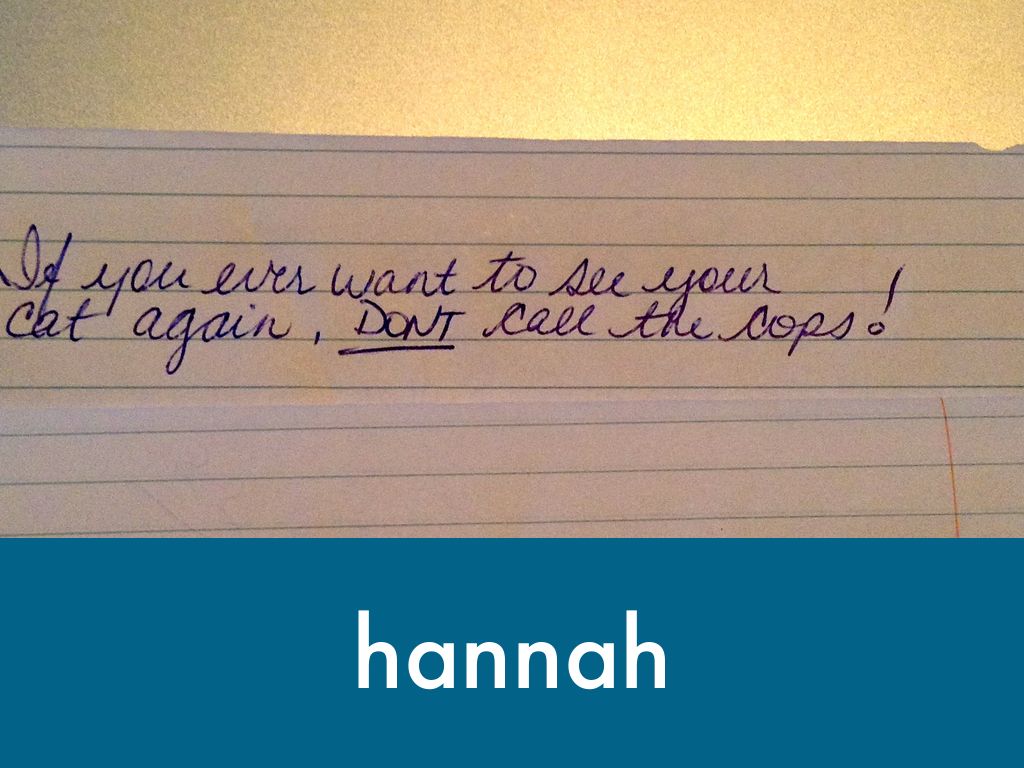 If you ever want to see your
cat again, DONT call the cops!
hannah